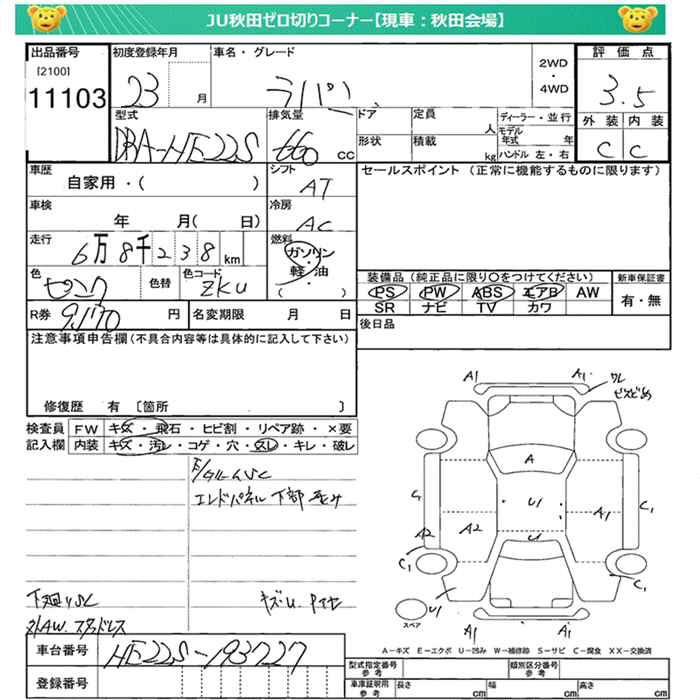 JU秋田ゼロ切りコーナー【現車：秋田会場】
出品番号
[2100]
11103
初度登録年月
23 月
車名・グレード
ラパン
2WD
・
4WD
評価点
3.5
外装 内装
C C
型式
DBA-HE22S
排気量
660 CC
ドア
定員
人
ディーラー・並行
モデル
年式 年
形状
積載
kg
ハンドル 左・右
車歴
自家用・( )
シフト
AT
セールスポイント (正常に機能するものに限ります)
車検
年 月( 日)
冷房
AC
走行
6万8千238km
燃料
ガソリン
・
軽油
( )
色
ピンク
色替
色コード
ZKU
装備品 (純正品に限り○をつけてください)
PS PW ABS エアB AW
SR ナビ TV カワ
新車保証書
有・無
R券
9,170 円
名変期限 月 日
後日品
注意事項申告欄(不具合内容等は具体的に記入して下さい)
修復歴 有 〔箇所 〕
検査員
記入欄
FW キズ・飛石・ヒビ割・リペア跡・×要
内装 キズ・汚レ・コゲ・穴・スレ・キレ・破レ
エンドパネル 下部 歪み
下廻りSC
外AW. スタッドレス
キズU. タイヤ
A1
A1
ワレ
ビスどめ
A
A1
U1
A2
A1
C1
A2
C1
U
C1
U1
A1
A1
スペア
A－キズ E－エクボ U－凹み W－補修跡 S－サビ C－腐食 XX－交換済
車台番号
HE22S-193727
登録番号
型式指定番号
参考
類別区分番号
参考
車庫証明用
参考
長さ cm
幅 cm
高さ cm